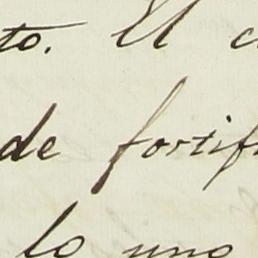 to. El c
de fortif
lo uno